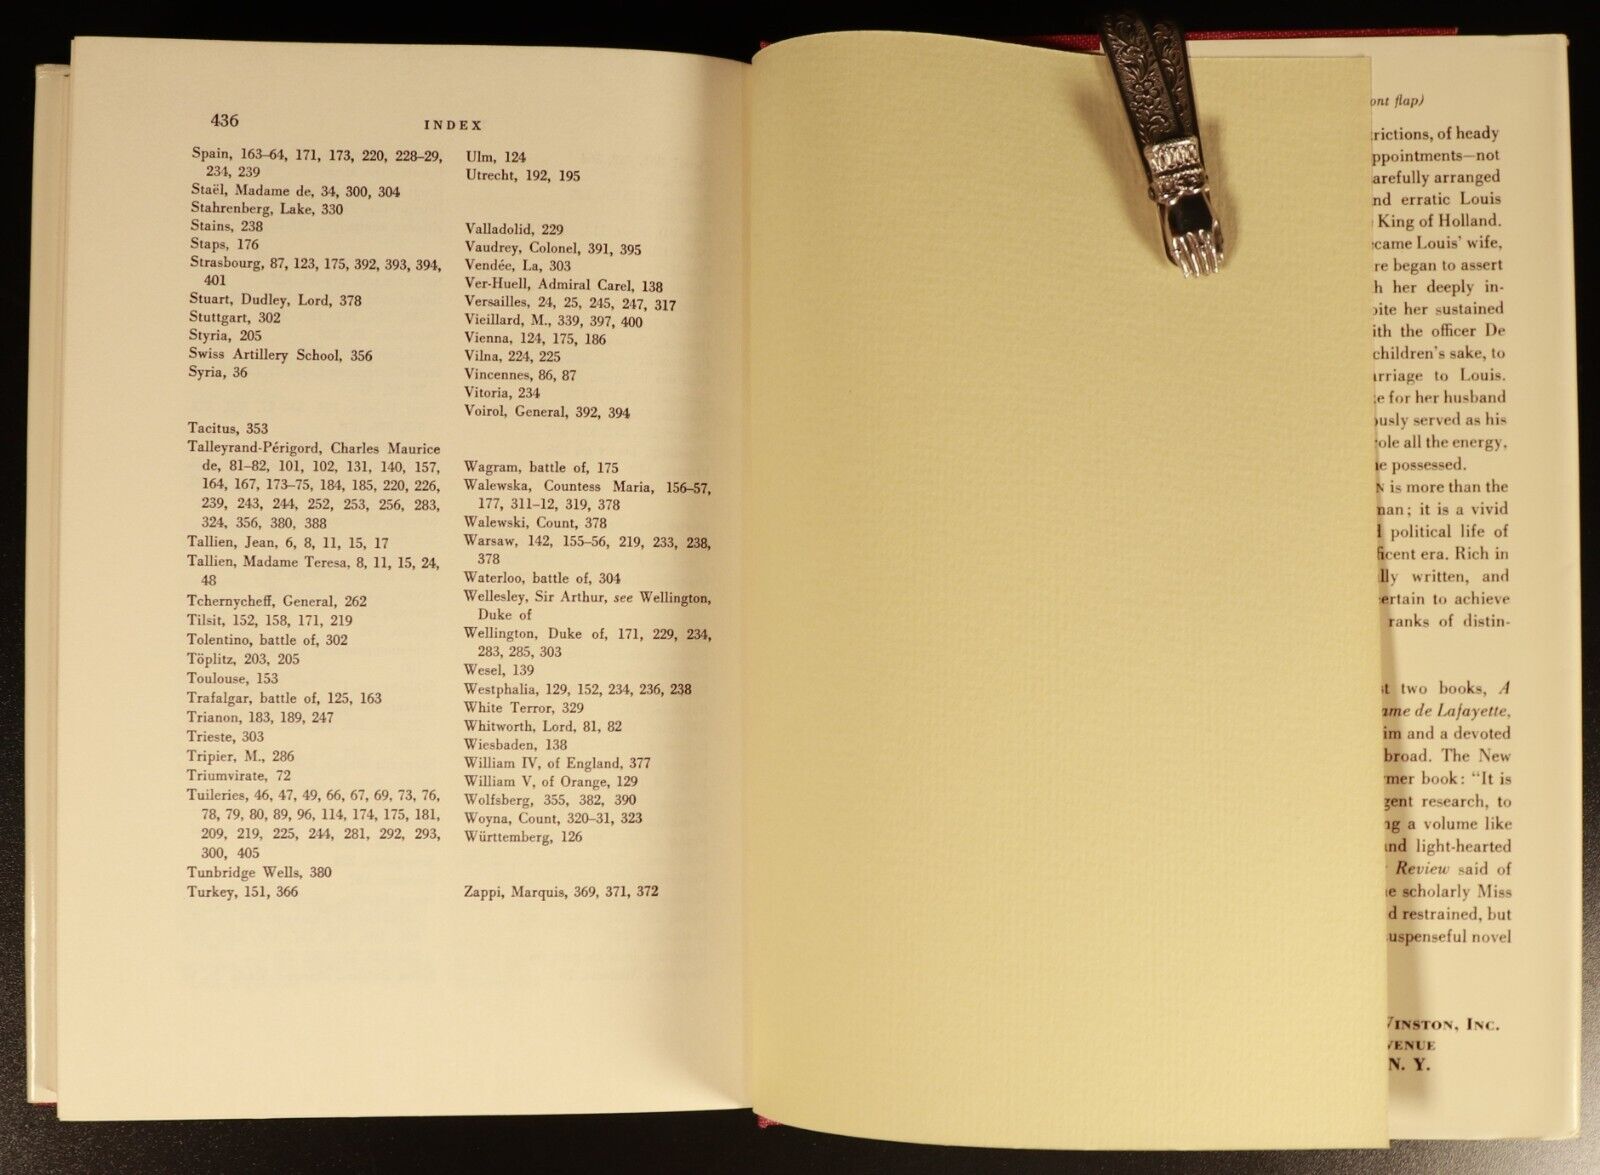 436
INDEX
Spain, 163–64, 171, 173, 220, 228–29,
234, 239
Staël, Madame de, 34, 300, 304
Stahrenberg, Lake, 330
Stains, 238
Staps, 176
Strasbourg, 87, 123, 175, 392, 393, 394,
401
Stuart, Dudley, Lord, 378
Stuttgart, 302
Styria, 205
Swiss Artillery School, 356
Syria, 36
Tacitus, 353
Talleyrand-Périgord, Charles Maurice
de, 81–82, 101, 102, 131, 140, 157,
164, 167, 173–75, 184, 185, 220, 226,
239, 243, 244, 252, 253, 256, 283,
324, 356, 380, 388
Tallien, Jean, 6, 8, 11, 15, 17
Tallien, Madame Teresa, 8, 11, 15, 24,
48
Tchernycheff, General, 262
Tilsit, 152, 158, 171, 219
Tolentino, battle of, 302
Töplitz, 203, 205
Toulouse, 153
Trafalgar, battle of, 125, 163
Trianon, 183, 189, 247
Trieste, 303
Tripier, M., 286
Triumvirate, 72
Tuileries, 46, 47, 49, 66, 67, 69, 73, 76,
78, 79, 80, 89, 96, 114, 174, 175, 181,
209, 219, 225, 244, 281, 292, 293,
300, 405
Tunbridge Wells, 380
Turkey, 151, 366
Ulm, 124
Utrecht, 192, 195
Valladolid, 229
Vaudrey, Colonel, 391, 395
Vendée, La, 303
Ver-Huell, Admiral Carel, 138
Versailles, 24, 25, 245, 247, 317
Vieillard, M., 339, 397, 400
Vienna, 124, 175, 186
Vilna, 224, 225
Vincennes, 86, 87
Vitoria, 234
Voirol, General, 392, 394
Wagram, battle of, 175
Walewska, Countess Maria, 156–57,
177, 311–12, 319, 378
Walewski, Count, 378
Warsaw, 142, 155–56, 219, 233, 238,
378
Waterloo, battle of, 304
Wellesley, Sir Arthur, see Wellington,
Duke of
Wellington, Duke of, 171, 229, 234,
283, 285, 303
Wesel, 139
Westphalia, 129, 152, 234, 236, 238
White Terror, 329
Whitworth, Lord, 81, 82
Wiesbaden, 138
William IV, of England, 377
William V, of Orange, 129
Wolfsberg, 355, 382, 390
Woyna, Count, 320–31, 323
Württemberg, 126
Zappi, Marquis, 369, 371, 372
flap)
of heady
not
arranged
erratic Louis
King of Holland.
Louis' wife,
began to assert
her deeply in-
her sustained
the officer De
children's sake, to
to Louis.
for her husband
served as his
all the energy,
possessed.
is more than the
it is a vivid
political life of
era. Rich in
written, and
to achieve
ranks of distin-
two books, A
de Lafayette,
and a devoted
The New
book: "It is
research, to
a volume like
light-hearted
Review said of
scholarly Miss
restrained, but
novel
INC.
N. Y.